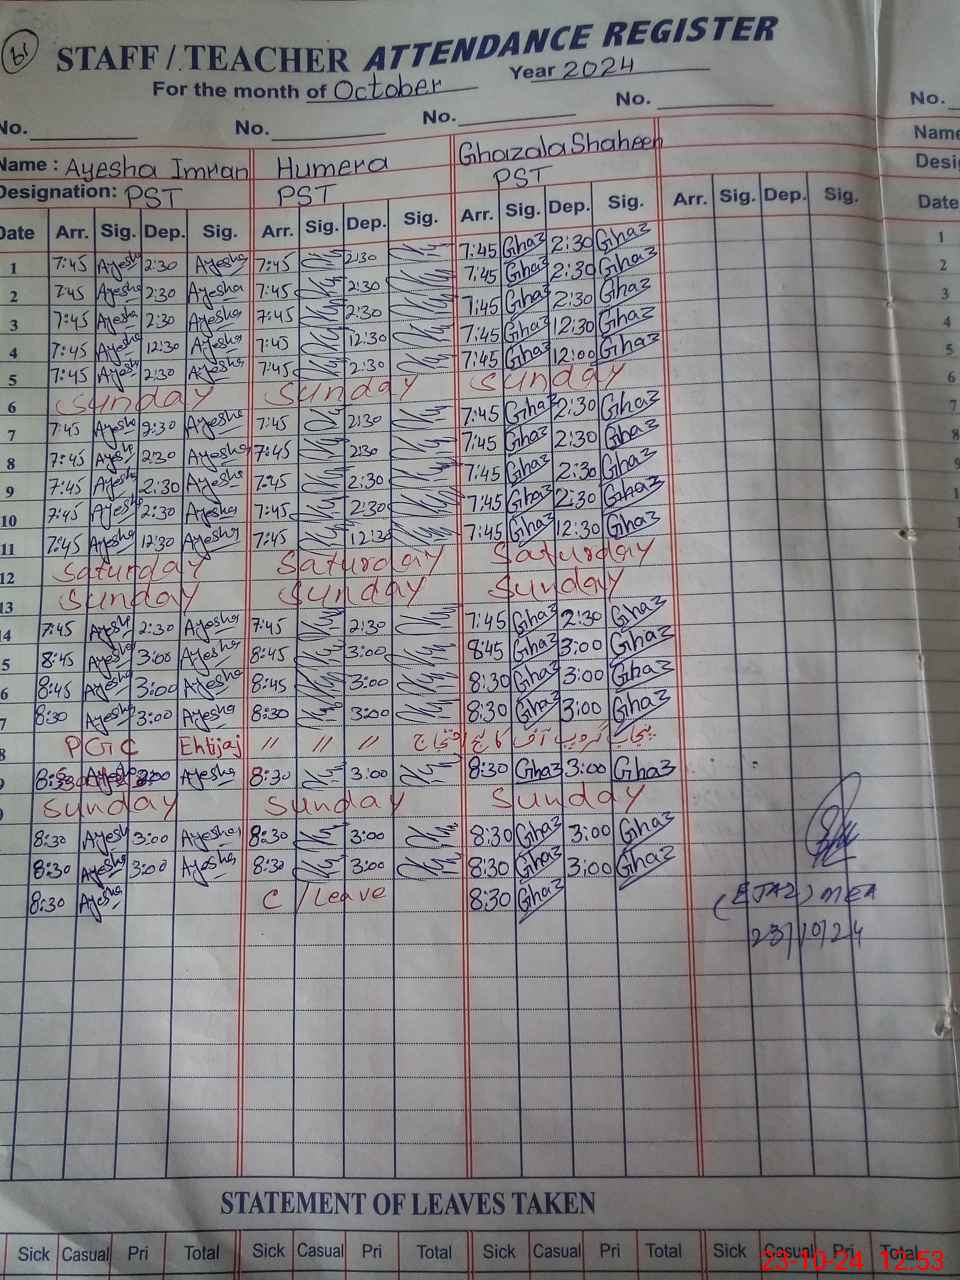 STAFF / TEACHER ATTENDANCE REGISTER
For the month of October Year 2024
No. No. No. No. No.
Name : Ayesha Imran Humera Ghazala Shaheen Name
Designation: PST PST PST Desig
Date Arr. Sig. Dep. Sig. Arr. Sig. Dep. Sig. Arr. Sig. Dep. Sig. Arr. Sig. Dep. Sig. Date
1 7:45 Ayesha 2:30 Ayesha 7:45 2:30 7:45 Ghaz 2:30 Ghaz 1
2 7:45 Ayesha 2:30 Ayesha 7:45 2:30 7:45 Ghaz 2:30 Ghaz 2
3 7:45 Ayesha 2:30 Ayesha 7:45 2:30 7:45 Ghaz 2:30 Ghaz 3
4 7:45 Ayesha 12:30 Ayesha 7:45 12:30 7:45 Ghaz 12:30 Ghaz 4
5 7:45 Ayesha 2:30 Ayesha 7:45 2:30 7:45 Ghaz 12:00 Ghaz 5
6 Sunday Sunday Sunday 6
7 7:45 Ayesha 2:30 Ayesha 7:45 2:30 7:45 Ghaz 2:30 Ghaz 7
8 7:45 Ayesh 2:30 Ayesha 7:45 2:30 7:45 Ghaz 2:30 Ghaz 8
9 7:45 Ayesha 2:30 Ayesha 7:45 2:30 7:45 Ghaz 2:30 Ghaz
10 7:45 Ayesha 2:30 Ayesha 7:45 2:30 7:45 Ghaz 2:30 Ghaz
11 7:45 Ayesha 12:30 Ayesha 7:45 7:45 Ghaz 12:30 Ghaz
12 Saturday Saturday Saturday
13 Sunday Sunday Sunday
14 7:45 Ayesh 2:30 Ayesha 7:45 2:30 7:45 Ghaz 2:30 Ghaz
5 8:45 Ayesha 3:00 Ayesha 8:45 3:00 8:45 Ghaz 3:00 Ghaz
6 8:45 Ayesha 3:00 Ayesha 8:45 3:00 8:30 Ghaz 3:00 Ghaz
7 8:30 Ayesha 3:00 Ayesha 8:30 3:00 8:30 Ghaz 3:00 Ghaz
8 PGC Ehtijaj // // // پنجاب گروپ آف کالج احتجاج
Ayesha 3:00 Ayesha 8:30 3:00 8:30 Ghaz 3:00 Ghaz
Sunday Sunday Sunday
8:30 Ayesh 3:00 Ayesha 8:30 3:00 8:30 Ghaz 3:00 Ghaz
8:30 Ayesha 3:00 Ayesha 8:30 3:00 8:30 Ghaz 3:00 Ghaz
8:30 Ayesha C / Leave 8:30 Ghaz
(EJAZ) MEA
23/10/24
STATEMENT OF LEAVES TAKEN
Sick Casual Pri Total Sick Casual Pri Total Sick Casual Pri Total Sick Casual Pri Total
23-10-24 12:53